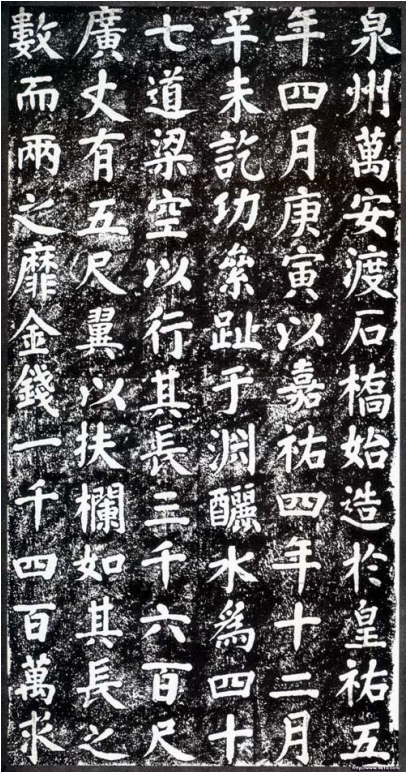 泉州萬安渡石橋始造於皇祐五
年四月庚寅以嘉祐四年十二月
辛未訖功絫趾于淵釃水爲四十
七道梁空以行其長三千六百尺
廣丈有五尺翼以扶欄如其長之
數而兩之靡金錢一千四百萬求